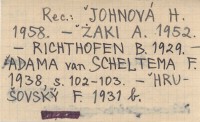 Rec.: ˇJOHNOVÁ H.
1958. – ˇŽAKI A. 1952.
– RICHTHOFEN B. 1929. –
ADAMA van SCHELTEMA F.
1938, s. 102-103. – ˇHRU-
ŠOVSKÝ F. 1931 b.